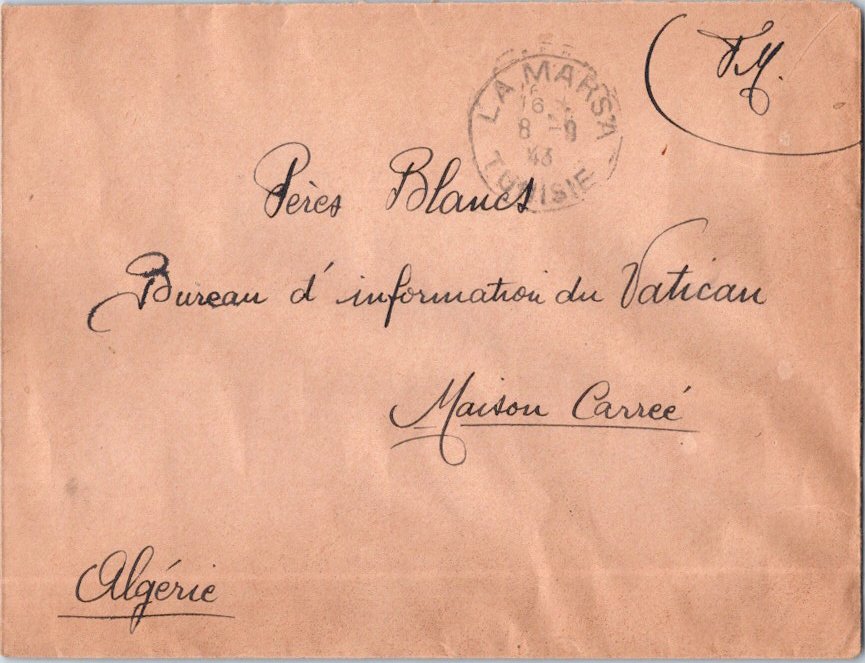 F.M.
LA MARSA
16 *
8 -9
43
TUNISIE
Pères Blancs
Bureau d'information du Vatican
Maison Carreé
Algérie